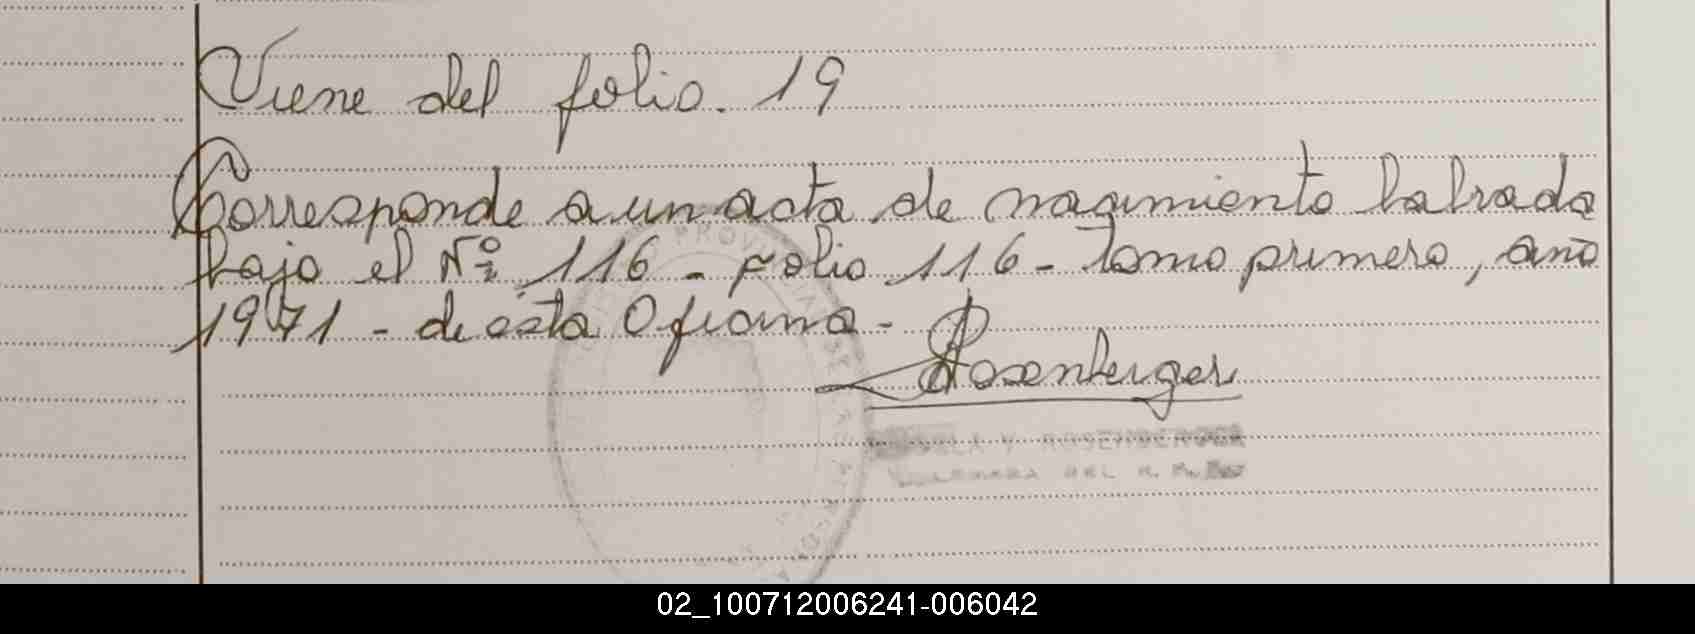 Viene del folio. 19
Corresponde a un acta de nacimiento labrada
bajo el Nº 116 - folio 116 - tomo primero, año
1971 - de esta Oficina -
Rosenberger
PROVINCIA
Y ROSENBERGER
DEL R.
02_100712006241-006042